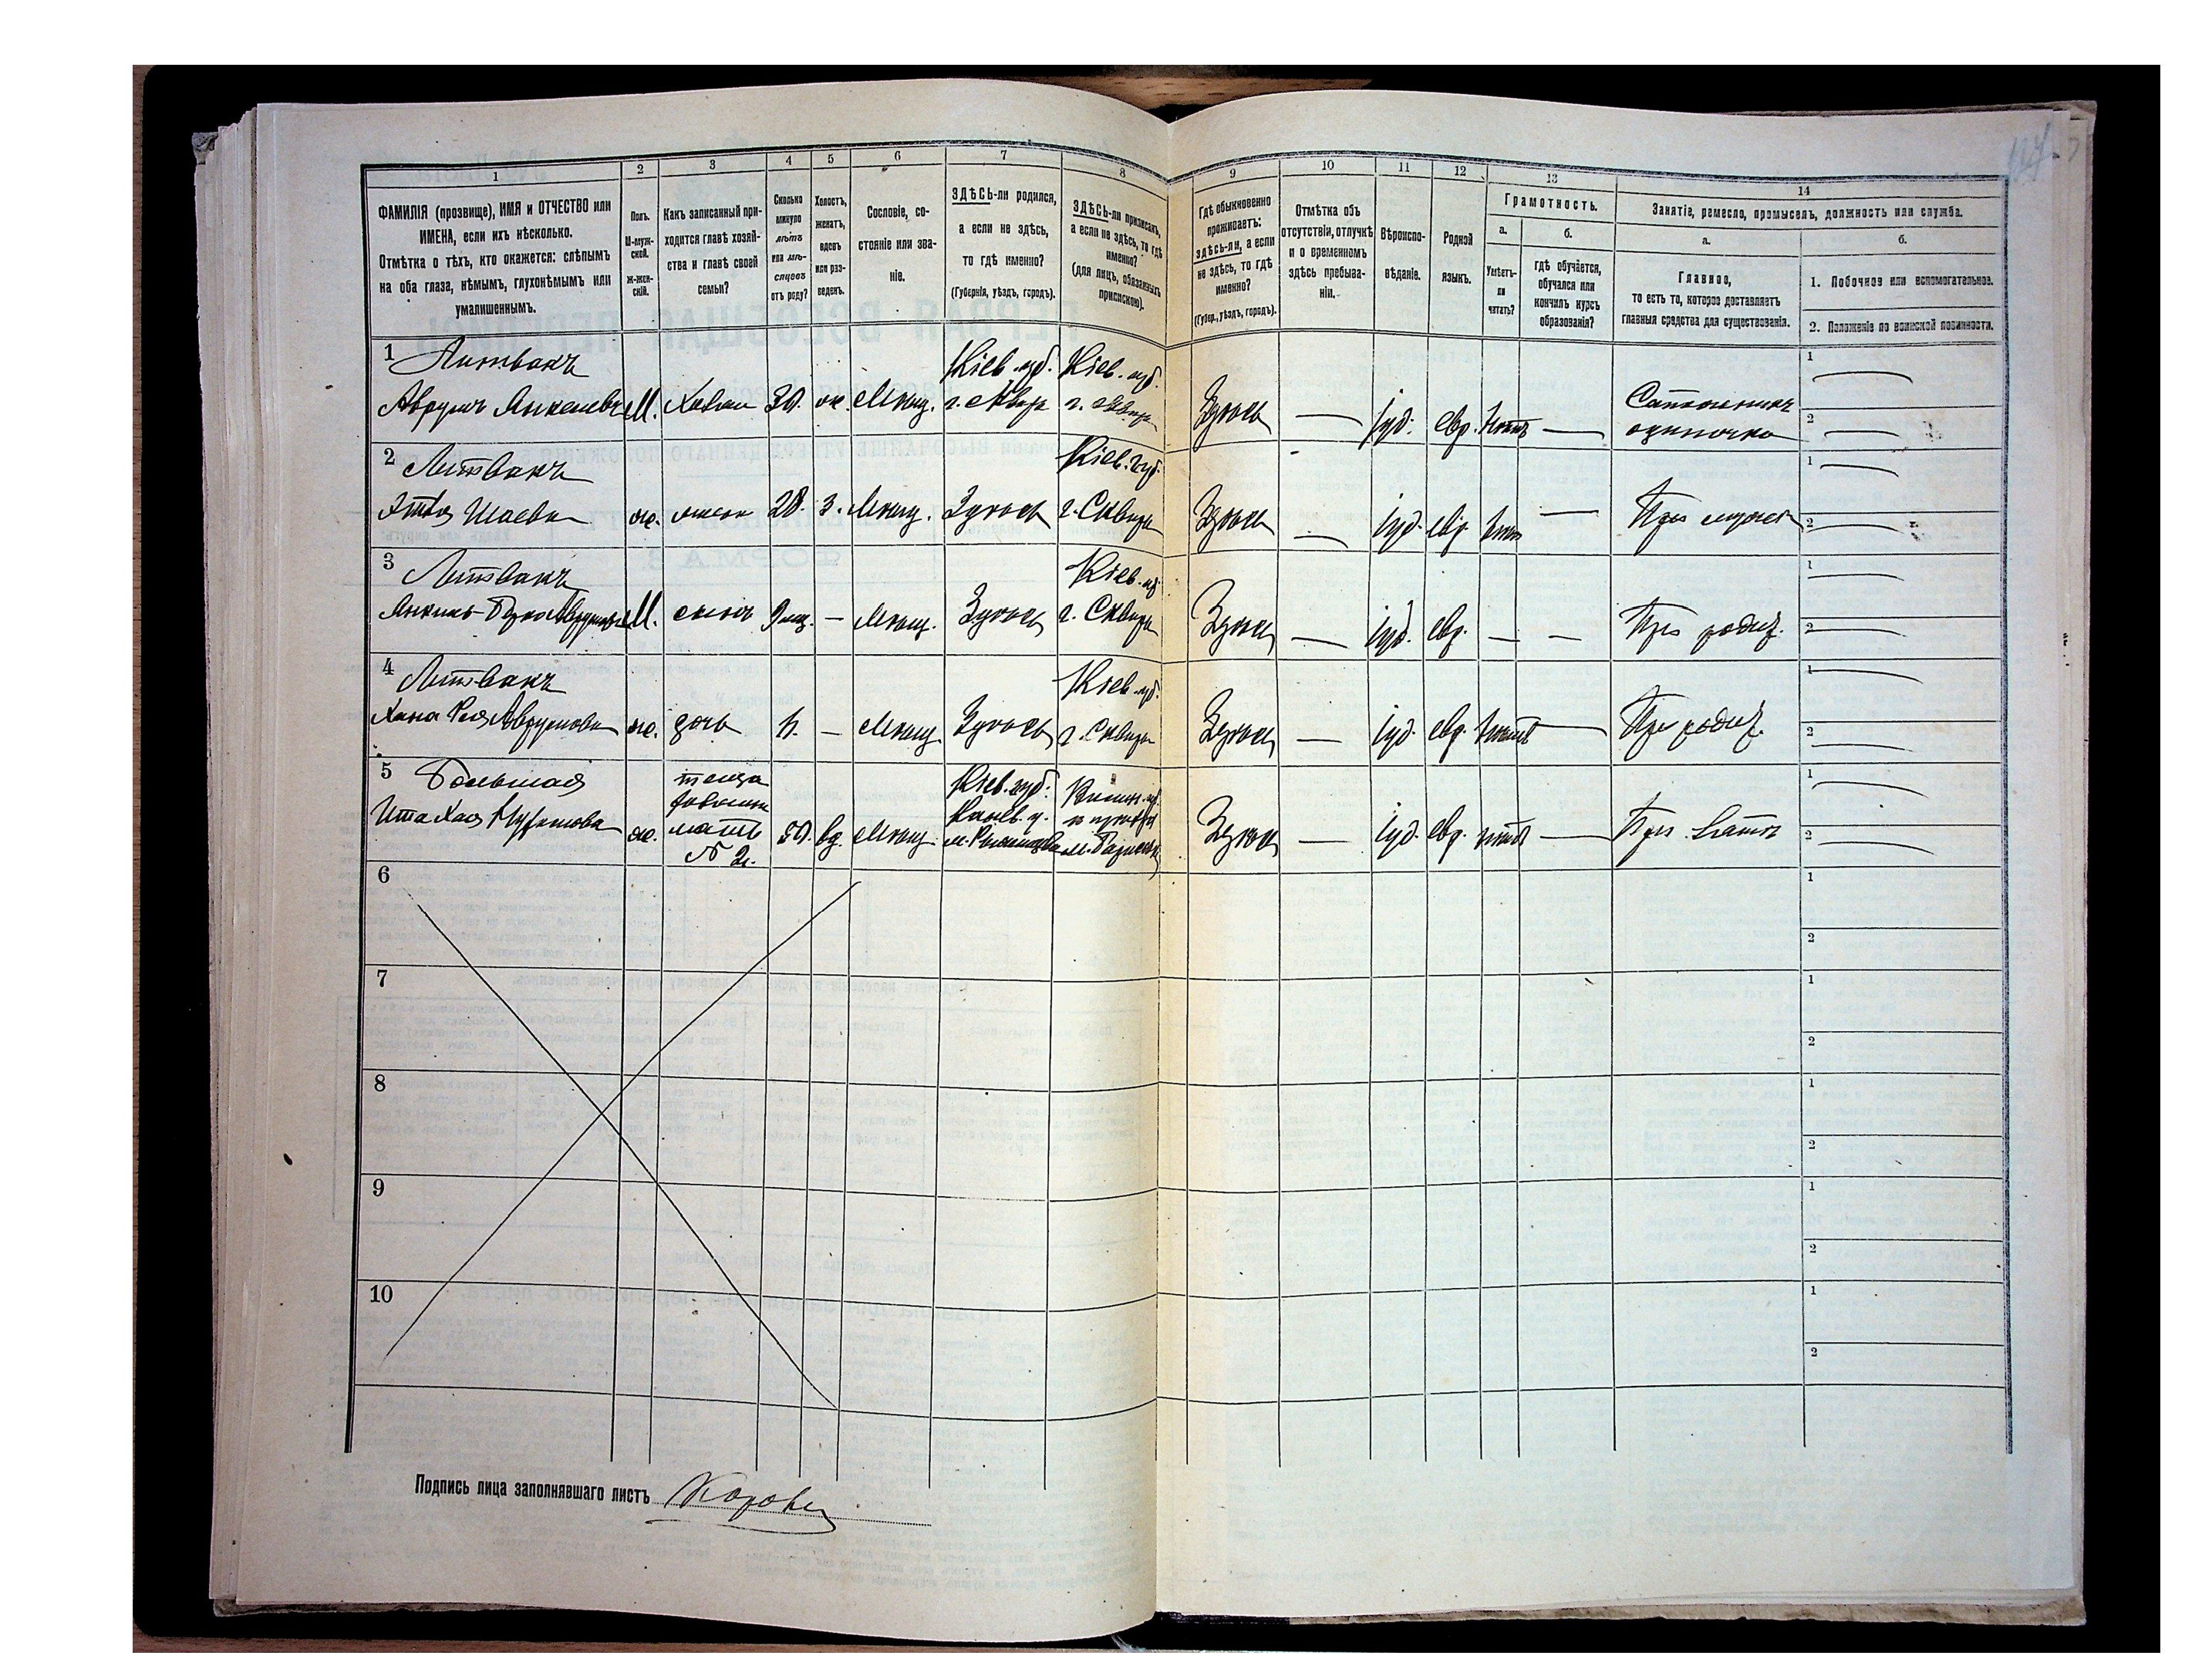 1 2 3 4 5 6 7 8 9 10 11 12 13 14
ФАМИЛІЯ (прозвище), ИМЯ и ОТЧЕСТВО или
ИМЕНА, если ихъ нѣсколько.
Отмѣтка о тѣхъ, кто окажется: слѣпымъ
на оба глаза, нѣмымъ, глухонѣмымъ или
умалишеннымъ.
Полъ.
М-муж-
ской.
Ж-жен-
скій.
Какъ записанный при-
ходится главѣ хозяй-
ства и главѣ своей
семьи?
Сколько
минуло
лѣтъ
или мѣ-
сяцевъ
отъ роду?
Холостъ,
женатъ,
вдовъ
или раз-
веденъ.
Сословіе, со-
стояніе или зва-
ніе.
ЗДѢСЬ-ли родился,
а если не здѣсь,
то гдѣ именно?
(Губернія, уѣздъ, городъ).
ЗДѢСЬ-ли приписанъ,
а если не здѣсь, то гдѣ
именно?
(для лицъ, обязанныхъ
припискою).
Гдѣ обыкновенно
проживаетъ:
здѣсь-ли, а если
не здѣсь, то гдѣ
именно?
(Губер., уѣздъ, городъ).
Отмѣтка объ
отсутствіи, отлучкѣ
и о временномъ
здѣсь пребыва-
ніи.
Вѣроиспо-
вѣданіе.
Родной
языкъ.
Грамотность.
а.
Умѣетъ-
ли
читать?
б.
гдѣ обучается,
обучался или
кончилъ курсъ
образованія?
Занятіе, ремесло, промыселъ, должность или служба.
а.
Главное,
то есть то, которое доставляетъ
главныя средства для существованія.
б.
1. Побочное или вспомогательное.
2. Положеніе по воинской повинности.
1 Литвакъ Кіев. губ. Кіев. губ. 1
Аврумъ Янкелевъ М. Хозяин 30. ж. Мѣщ. г. Сквира г. Сквира Здѣсь — іуд. евр. нѣтъ — Сапожникъ 2
одиночка
2 Литвакъ Кіев. губ. 1
Шаева ж. жена 28. з. Мѣщ. Здѣсь г. Сквира Здѣсь — іуд. евр. нѣтъ — При мужѣ 2
3 Литвакъ Кіев. губ. 1
М. сынъ 9 мѣс. — Мѣщ. Здѣсь г. Сквира Здѣсь — іуд. евр. — — При родит. 2
4 Литвакъ Кіев. губ. 1
Хана Аврумова ж. дочь — Мѣщ. Здѣсь г. Сквира Здѣсь — іуд. евр. нѣтъ — При родит. 2
5 Большая теща Кіев. губ. 1
Ита Хая хозяина Канев. у.
ж. мать 50. вд. Мѣщ. Здѣсь — іуд. евр. нѣтъ — При зятѣ 2
№ 2.
6 1
2
7 1
2
8 1
2
9 1
2
10 1
2
Подпись лица заполнявшаго листъ